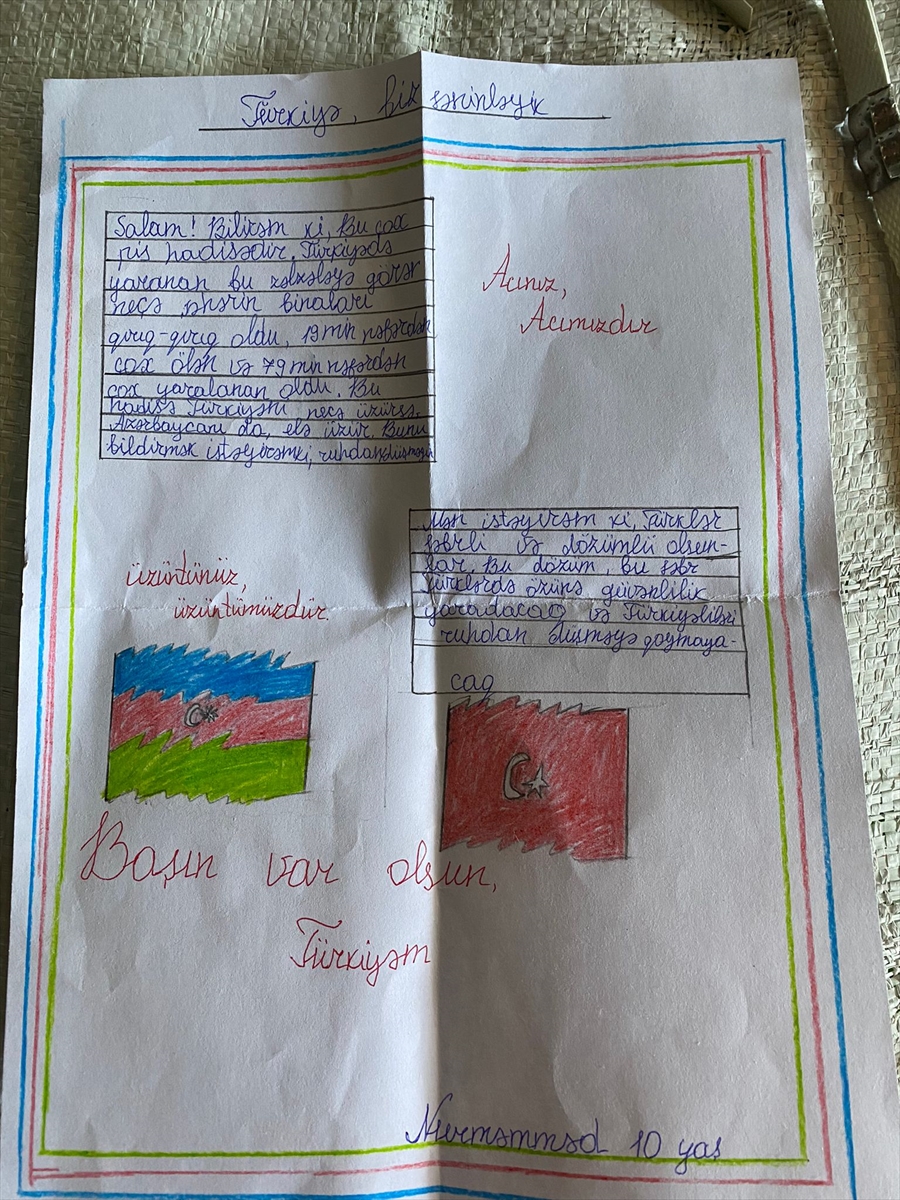 Türkiyə, biz səninləyik
Salam! Bilirəm ki, Bu çox
pis hadisədir. Türkiyədə
yaranan bu zəlzələyə görə
neçə şəhərin binaları
qırıq-qırıq oldu, 19 min nəfərdən
çox ölən və 79 min nəfərdən
çox yaralanan oldu. Bu
hadisə Türkiyəni necə üzürsə.
Azərbaycanı da, elə üzür. Bunu
bildirmək istəyirəmki, ruhdan
Acınız,
Acımızdır
Mən istəyirəm ki, Türklər
səbrli və dözümlü olsun-
lar. Bu dözüm, bu səbr
türklərdə özünə güvənlilik
yaradacaq və Türkiyəliləri
ruhdan düşməyə qoymaya-
caq
üzüntünüz,
üzüntümüzdür.
Başın var olsun,
Türkiyəm
Nurməmməd 10 yaş